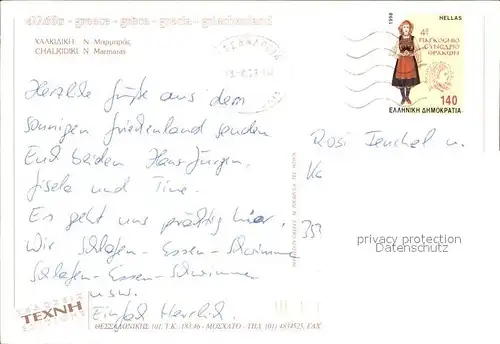 ελλάδα - greece - grèce - grecia - griechenland
ΧΑΛΚΙΔΙΚΗ: Ν. Μαρμαράς
CHALKIDIKI: N. Marmaras
1998
HELLAS
4º
ΠΑΓΚΟΣΜΙΟ
ΣΥΝΕΔΡΙΟ
ΘΡΑΚΩΝ
140
ΕΛΛΗΝΙΚΗ ΔΗΜΟΚΡΑΤΙΑ
Herzliche Grüße aus dem
sonnigen Griechenland senden
Euch beiden Hans-Jürgen,
Gisela und Tine.
Es geht uns prächtig hier.
Wir Schlafen - Essen - Schwimmen
Schlafen - Essen - Schwimmen
usw.
Einfach Herrlich.
Rosi Teuchel u.
353
privacy protection
VDMedien24.de
ΕΚΔΟΣΕΙΣ
ΤΕΧΝΗ
EDITIONS
ΘΕΣΣΑΛΟΝΙΚΗΣ 101, Τ.Κ.: 183.46 - ΜΟΣΧΑΤΟ - ΤΗΛ. (01) 4834525, FAX